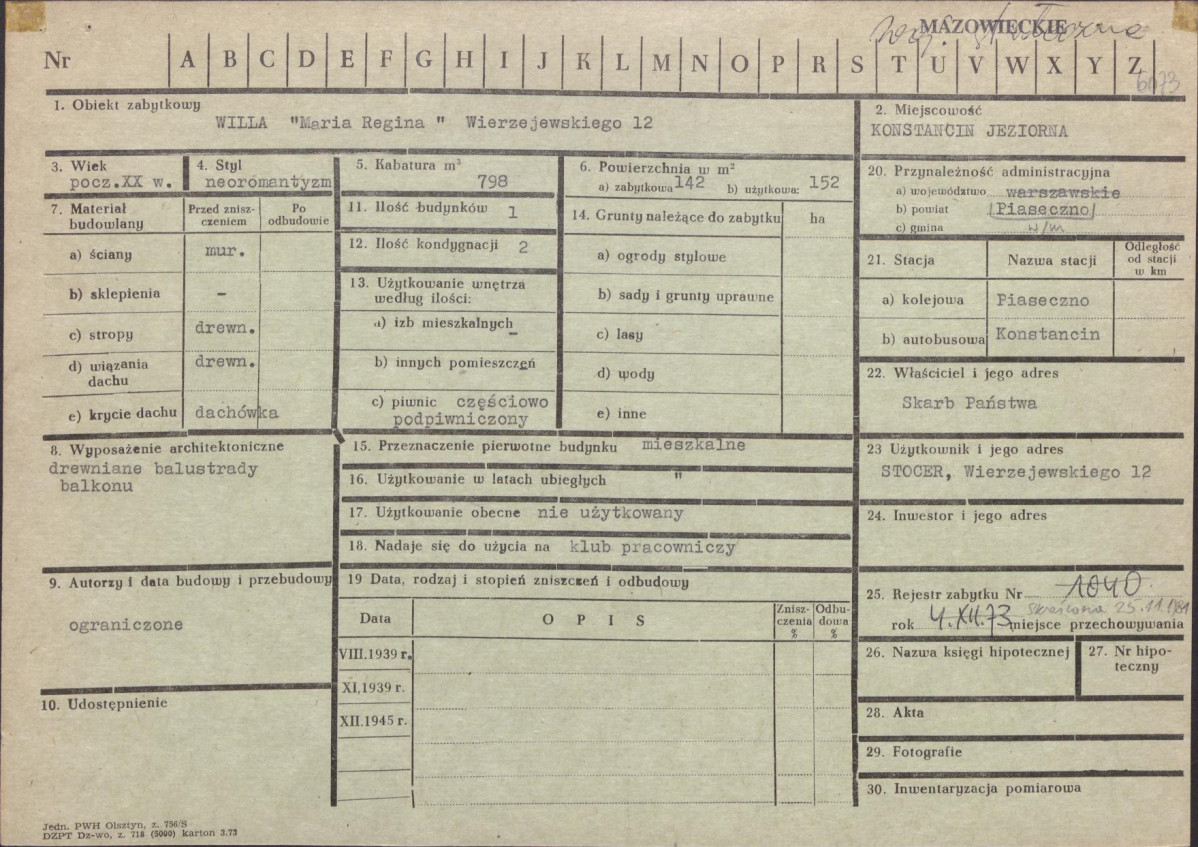 MAZOWIECKIE
Nr A B C D E F G H I J K L M N O P R S T U V W X Y Z
6073
1. Obiekt zabytkowy
WILLA "Maria Regina " Wierzejewskiego 12
2. Miejscowość
KONSTANCIN JEZIORNA
3. Wiek
pocz.XX w.
4. Styl
neoromantyzm
5. Kabatura m³
798
6. Powierzchnia w m²
a) zabytkowa 142 b) użytkowa: 152
20. Przynależność administracyjna
a) województwo warszawskie
b) powiat Piaseczno
c) gmina w/m
7. Materiał budowlany
Przed znisz-
czeniem
Po
odbudowie
a) ściany mur.
b) sklepienia –
c) stropy drewn.
d) wiązania
dachu drewn.
e) krycie dachu dachówka
11. Ilość budynków 1
12. Ilość kondygnacji 2
13. Użytkowanie wnętrza
według ilości:
a) izb mieszkalnych –
b) innych pomieszczeń
c) piwnic częściowo
podpiwniczony
14. Grunty należące do zabytku ha
a) ogrody stylowe
b) sady i grunty uprawne
c) lasy
d) wody
e) inne
21. Stacja Nazwa stacji
Odległość
od stacji
w km
a) kolejowa Piaseczno
b) autobusowa Konstancin
22. Właściciel i jego adres
Skarb Państwa
8. Wyposażenie architektoniczne
drewniane balustrady
balkonu
15. Przeznaczenie pierwotne budynku mieszkalne
16. Użytkowanie w latach ubiegłych "
17. Użytkowanie obecne nie użytkowany
18. Nadaje się do użycia na klub pracowniczy
23 Użytkownik i jego adres
STOCER, Wierzejewskiego 12
24. Inwestor i jego adres
9. Autorzy i data budowy i przebudowy
ograniczone
10. Udostępnienie
19 Data, rodzaj i stopień zniszczeń i odbudowy
Data O P I S
Znisz-
czenia
%
Odbu-
dowa
%
VIII.1939 r.
XI,1939 r.
XII.1945 r.
25. Rejestr zabytku Nr 1040
skreślona 25.11.1981
rok 4.XII.73 miejsce przechowywania
26. Nazwa księgi hipotecznej
27. Nr hipo-
teczny
28. Akta
29. Fotografie
30. Inwentaryzacja pomiarowa
Jedn. PWH Olsztyn, z. 756/S
DZPT Dz-wo, z. 718 (5000) karton 3.73